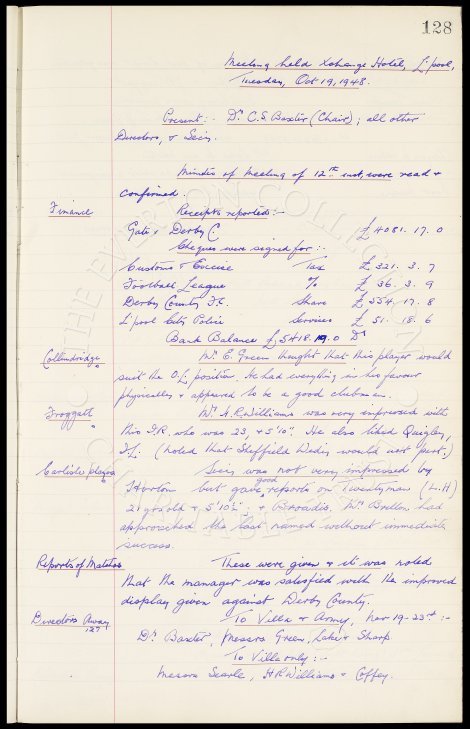 128
Meeting held Xchange Hotel, L'pool,
Tuesday, Oct 19, 1948.
Present:- Dr. C.S. Baxter (Chair); all other
Directors, & Secy.
Minutes of Meeting of 12th inst, were read &
confirmed.
Finance Receipts reported:-
Gate v Derby C £4081. 17. 0
Cheques were signed for:-
Customs & Excise Tax £ 321. 3. 7
Football League % £ 36. 3. 9
Derby County F.C. Share £ 554. 17. 8
L'pool City Police Services £ 51. 18. 6
Bank Balance £5418. 19. 0 Dr
Collindridge Mr. E. Green thought that this player would
suit the O.L. position. He had everything in his favour
physically & appeared to be a good clubman.
Froggatt " Mr. H.R. Williams was very impressed with
this F.R. who was 23, & 5'10". He also liked Quigley,
I/L. (Noted that Sheffield Weds. would not part.)
Carlisle players Secy was not very impressed by
Horton but gave good reports on Twentyman (L.H)
21 yrs old & 5'10½", & Broadis. Mr had
approached the last named without immediate
success.
Reports of Matches These were given & it was noted
that the manager was satisfied with the improved
display given against Derby County.
Directors Away To Villa & Army, Nov 19-23rd:-
Dr. Baxter, Messrs Green, Lake & Sharp
To Villa only:-
Messrs Searle, H R Williams & Coffey.
THE EVERTON COLLECTION